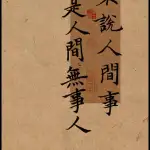 說人間事
是人間無事人